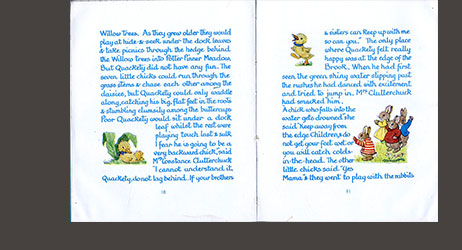 Willow Trees. As they grew older they would
play at hide & seek under the dock leaves
& take picnics through the hedge behind
the Willow trees into Potter Pinner Meadow.
But Quackety did not have any fun. The
seven little chicks could run through the
grass stems & chase each other among the
daisies, but Quackety could only waddle
along, catching his big, flat feet in the roots
& stumbling clumsily among the buttercups
Poor Quackety would sit under a dock
leaf whilst the rest were
playing touch last & sulk
"I fear he is going to be a
very backward chick", said
Mrs Constance Clutterchuck
"I cannot understand it.
Quackety, do not lag behind. If your brothers
10
& sisters can keep up with me
so can you." The only place
where Quackety felt really
happy was at the edge of the
Brook. When he had first
seen the green shiny water slipping past
the rushes he had danced with excitement
and tried to jump in. Mrs Clutterchuck
had smacked him.
"A chick who falls into the
water gets drowned" she
said "Keep away from
the edge Children, do
not get your feet wet or
you will catch colds-
in-the-head. The other
little chicks said "Yes
Mama" & they went to play with the rabbits
11